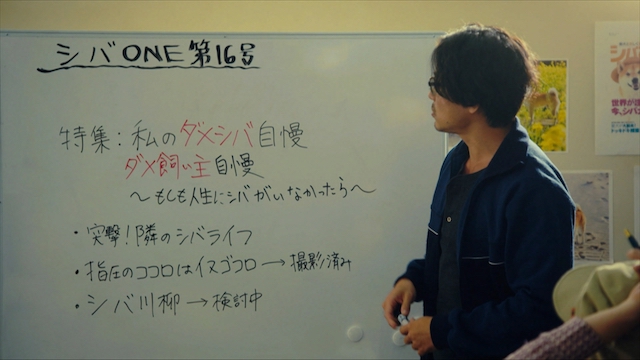 シバONE 第16号
特集:私のダメシバ自慢
ダメ飼い主自慢
〜もしも人生にシバがいなかったら〜
・突撃!隣のシバライフ
・指圧のココロはイヌゴコロ→撮影済み
・シバ川柳→検討中